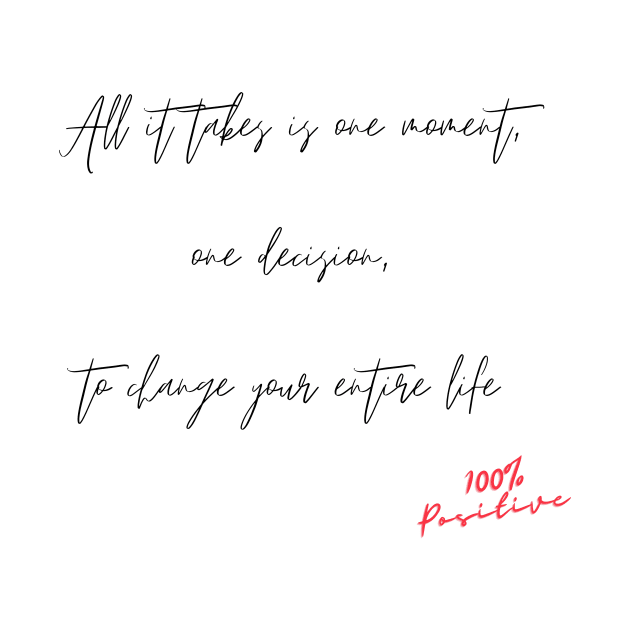 All it takes is one moment,
one decision,
to change your entire life
100%
Positive